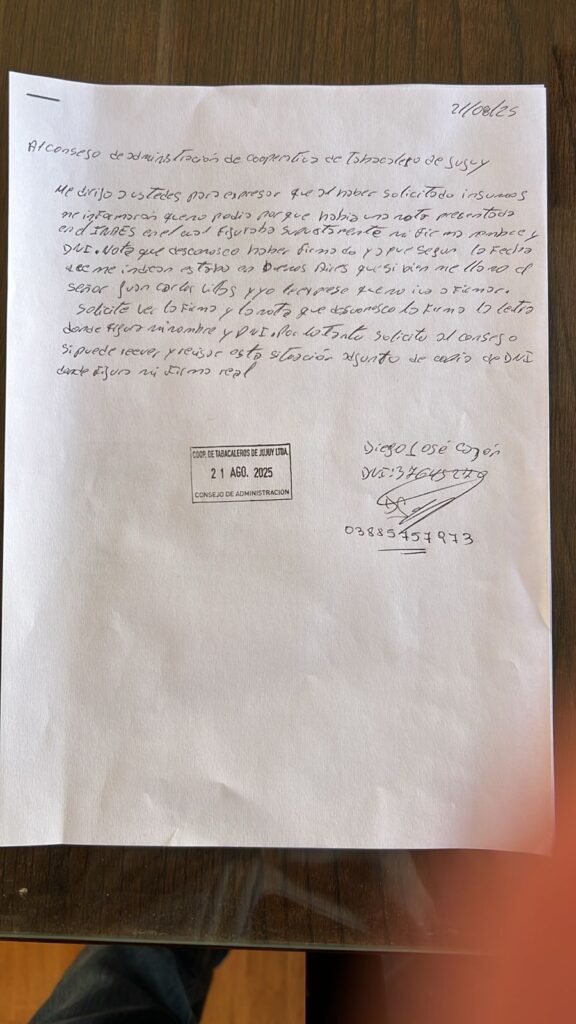 21/08/25
Al consejo de administración de cooperativa de tabacalero de Jujuy
Me dirijo a ustedes para expresar que al haber solicitado insumos
me informaron que no podia por que habia una nota presentada
en el INAES en el cual figuraba supuestamente mi firma nombre y
DNI. Nota que desconosco haber firmado ya que segun la fecha
que me indican estaba en Buenos Aires que si bien me llamo el
señor Juan Carlos y yo le exprese que no iva a firmar.
Solicite ver la firma y la nota que desconosco la firma la letra
donde figura mi nombre y DNI. Por lo tanto solicito al consejo
si puede reever y revisar esta situación adjunto de copia de DNI
donde figura mi firma real
COOP. DE TABACALEROS DE JUJUY LTDA.
21 AGO. 2025
CONSEJO DE ADMINISTRACION
Diego José
DNI: 37645279
03885457973